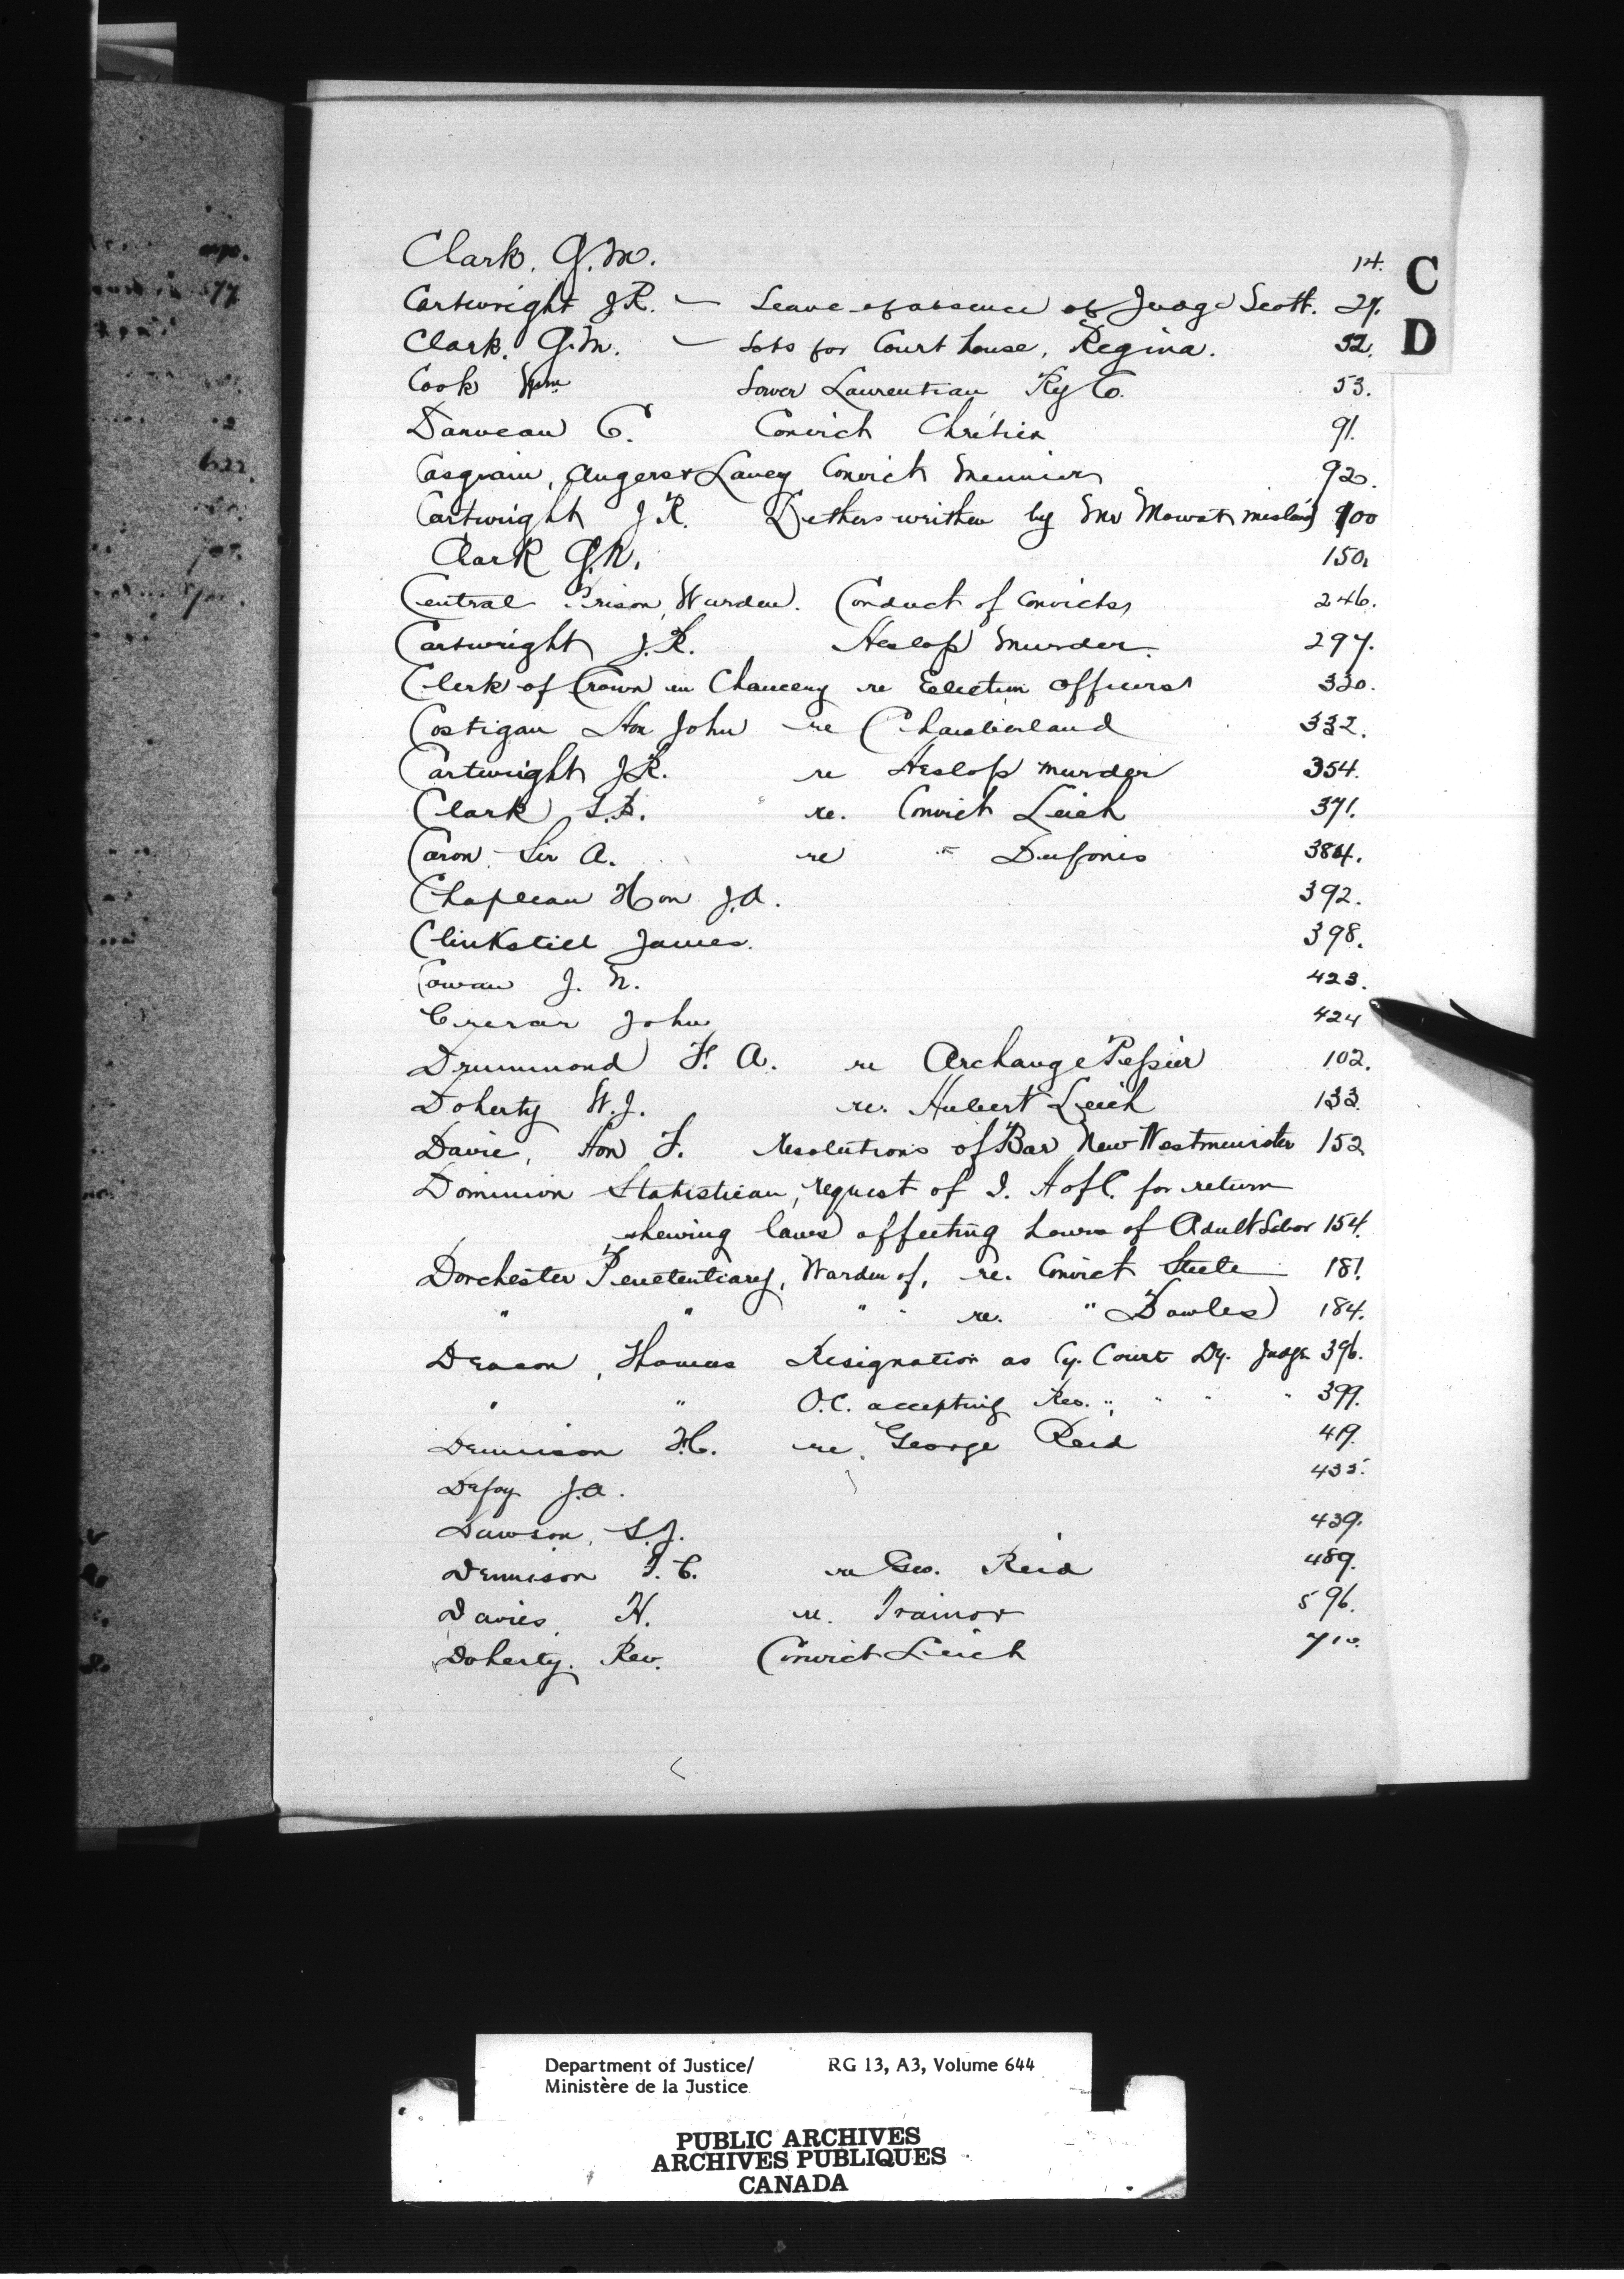 C
D
Clark, G. M. 14.
Cartwright J R. — Leave of absence of Judge Scott. 27.
Clark, G. M. — Lots for Court house, Regina. 52.
Cook Wm Lower Laurentian Ry Co. 53.
Danveau C. Convict Chrétien 91.
Casgrain, Angers & Lavey Convict Meunier 92.
Cartwright J R. Letters written by Mr Mowat mislaid 100
Clark G. R. 150.
Central Prison, Warden. Conduct of Convicts 246.
Cartwright J. R. Heslop Murder. 297.
Clerk of Crown in Chancery re Election Officers 320.
Costigan Hon John re Chamberland 332.
Cartwright J R. re Heslop murder 354.
Clark re. Convict Leich 371.
Caron Sir A. re " 384.
Chapleau Hon J. A. 392.
Clinkstill James. 398.
Cowan J. N. 423.
Crerar John 424
Drummond F. A. re Archange Tessier 102.
Doherty W. J. re. Hubert Leich 133.
Davie, Hon T. Resolutions of Bar New Westminister 152
Dominion Statistician, request of I. H of C. for return
shewing laws affecting hours of Adult Labor 154.
Dorchester Penetentiary, Warden of, re. Convict Steele 181.
" " " " re. " Dowles 184.
Deacon, Thomas Resignation as Cy. Court Dy. Judge 396.
" " O.C. accepting Res. " " " " 399.
Dennison F. C. re. George Reid 419.
Defoy J. A. 435.
Dawson, S. J. 439.
Dennison F. C. re Geo. Reid 489.
Davies, H. re. Trainor 596.
Doherty. Rev. Convict Leich 710.
Department of Justice/ RG 13, A3, Volume 644
Ministère de la Justice
PUBLIC ARCHIVES
ARCHIVES PUBLIQUES
CANADA